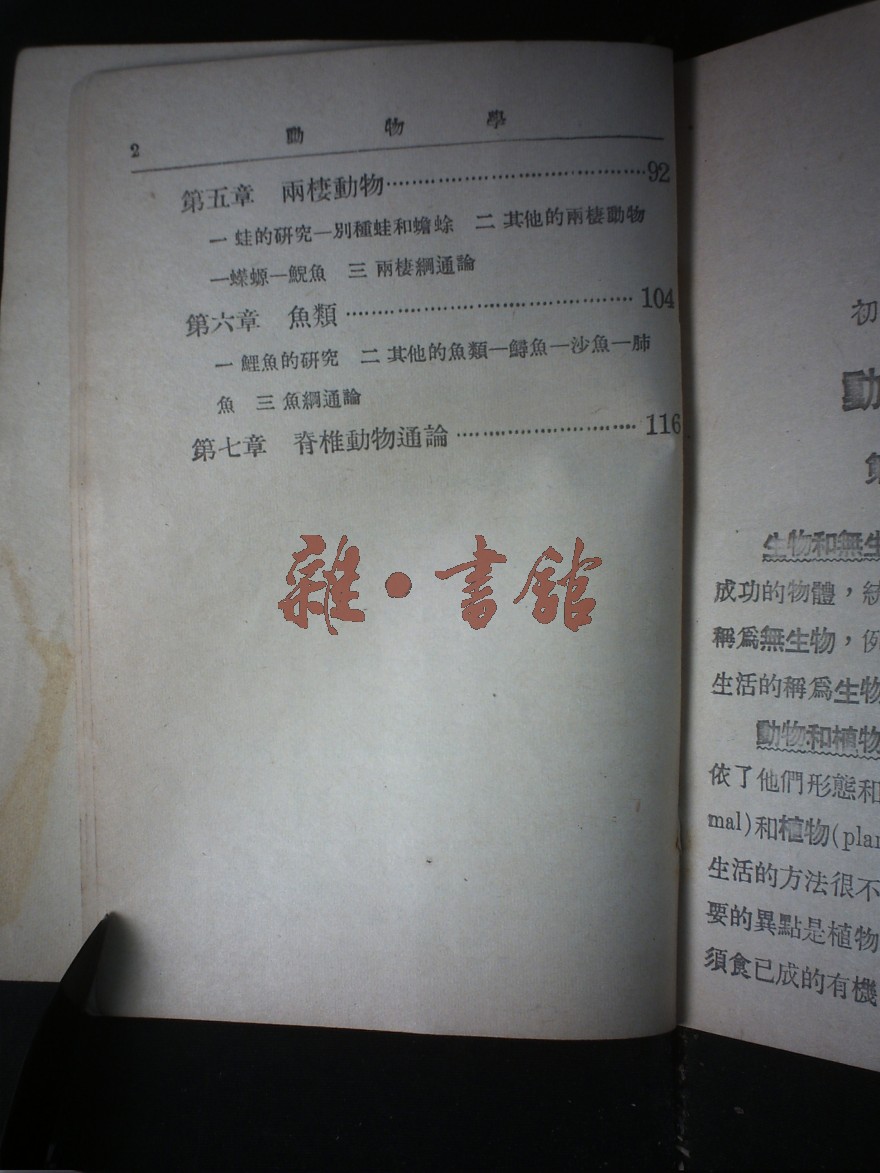 2 動物學
第五章 兩棲動物……………………………92
一 蛙的研究—別種蛙和蟾蜍 二 其他的兩棲動物
—蠑螈—鯢魚 三 兩棲綱通論
第六章 魚類……………………………104
一 鯉魚的研究 二 其他的魚類—鱘魚—沙魚—肺
魚 三 魚綱通論
第七章 脊椎動物通論……………………116
雜·書館
初
動
第
生物和無生
成功的物體，統
稱爲無生物，例
生活的稱爲生物
動物和植物
依了他們形態和
mal)和植物(plan
生活的方法很不
要的異點是植物
須食已成的有機